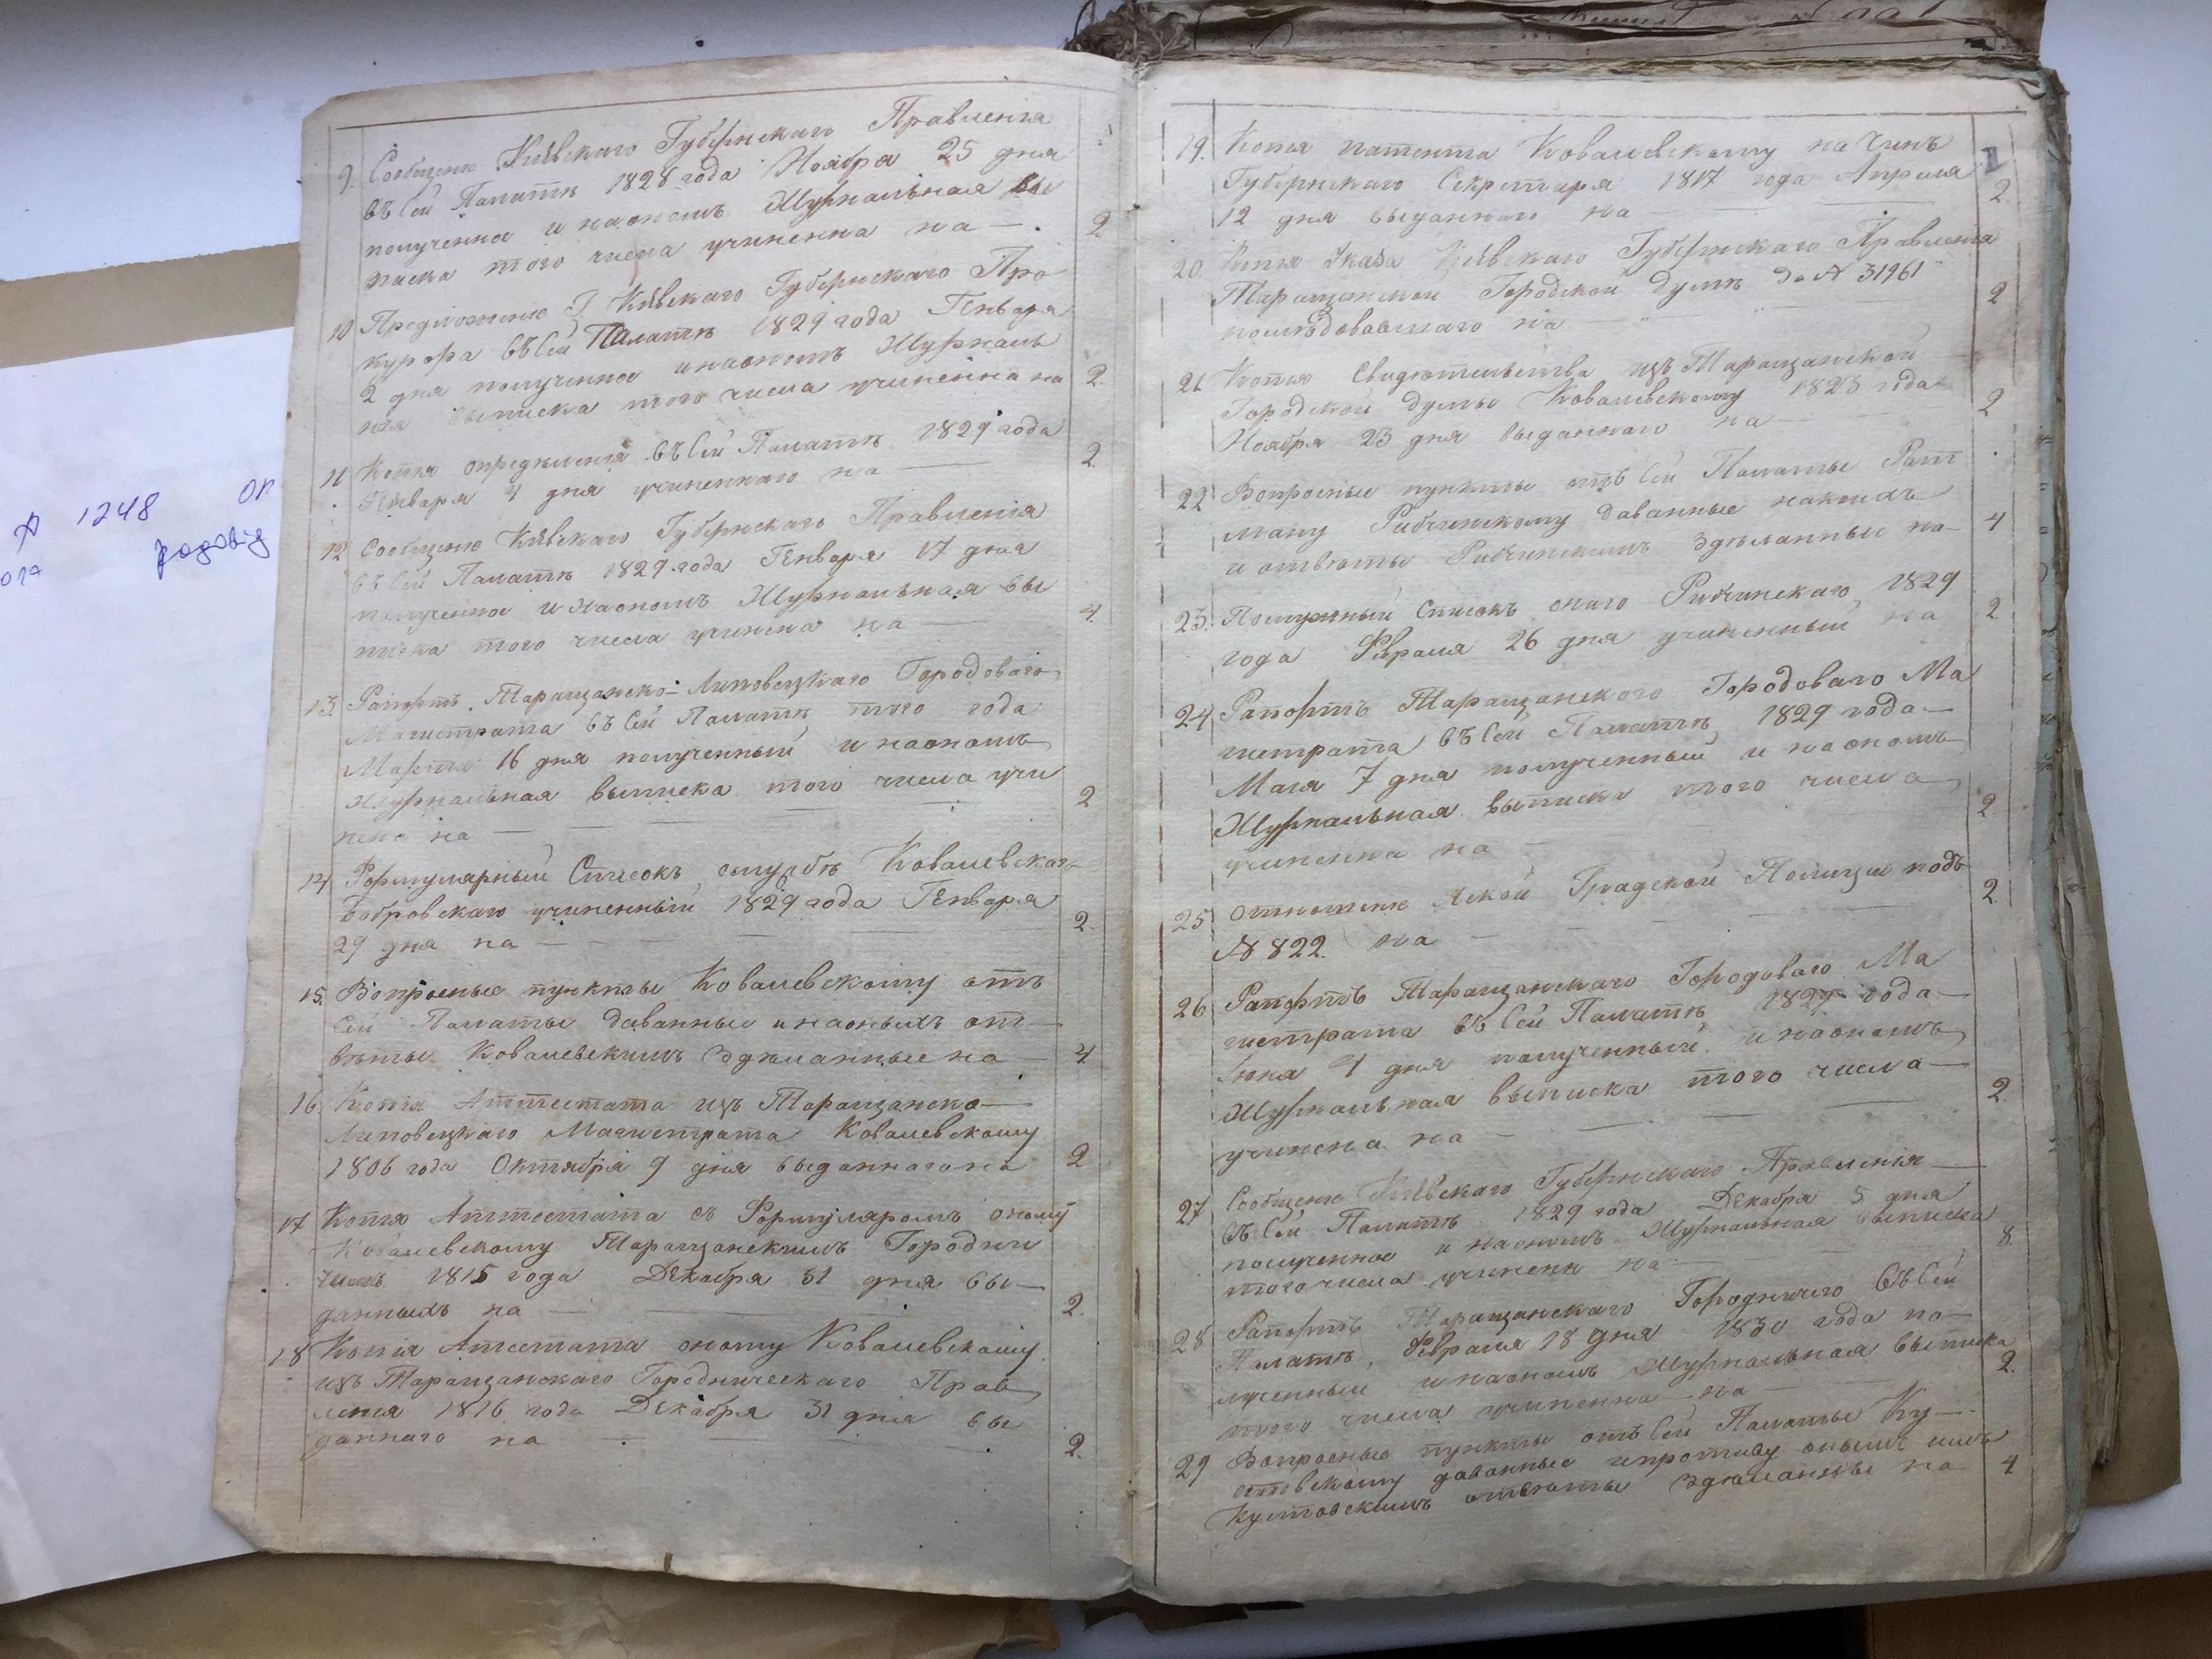 9. Сообщенie Кіевскаго Губернскаго Правленія
въ сей Палатѣ 1828 года Ноября 25 дня
полученное и наономъ Журнальная вы
писка того числа учиненна на — 2
10 Предложенiе Г. Кіевскаго Губернскаго Про
курора въ сей Палатѣ 1829 года Генваря
2 дня полученное и наономъ Журналь
ная выписка того числа учиненна на 2.
11 Копія опредѣленія въ сей Палатѣ 1829 года
Генваря 4 дня учиненнаго на — 2.
12 Сообщенiе Кіевскаго Губернскаго Правленія
въ сей Палатѣ 1829 года Генваря 17 дня
полученное и наономъ Журнальная вы
писка того числа учинена на — 4.
13. Рапортъ Таращанско-Липовецкаго Городоваго
Магистрата въ сей Палатѣ того года
Марта 16 дня полученный и наономъ
журнальная выписка того числа учи
нена на — 2
14 Формулярный Списокъ ослужбѣ Ковалевскаго
Бобровскаго учиненный 1829 года Генваря
29 дня на — 2.
15. Вопросные пункты Ковалевскому отъ
сей Палаты даванные и наоныхъ от—
вѣты Ковалевскимъ Здѣланные на — 4
16. Копія Аттестата изъ Таращанско—
Липовецкаго Магистрата Ковалевскому
1806 года Октября 9 дня выданнаго на 2
17 Копія Аттестата съ Формуляромъ оному
Ковалевскому Таращанскимъ Городни
чимъ 1815 года Декабря 31 дня вы—
данныхъ на — 2.
18 Копія Атестата оному Ковалевскому
изъ Таращанскаго Городническаго Прав
ленія 1816 года Декабря 31 дня вы
даннаго на — 2.
19. Копія патента Ковалевскому на Чинъ
Губернскаго Секретаря 1817 года Апреля
12 дня выданнаго на — 2.
20 Копія Указа Кіевскаго Губернскаго Правленія
Таращанской Городской думѣ за № 31961
послѣдовавшаго на — 2
21. Копія Свидѣтельства изъ Таращанской
Городской думы Ковалевскому 1823 года
Ноября 23 дня выданнаго на — 2
22 Вопросные пункты отъ сей Палаты Рат
ману Рибчинскому даванные
и отвѣты Рибчинскимъ Здѣланные на— 4
23. Послужный Списокъ онаго Рибчинскаго 1829
года Февраля 26 дня учиненный на 2
24 Рапортъ Таращанского Городоваго Ма
гистрата въ сей Палатѣ 1829 года—
Маія 7 дня полученный и наономъ
Журнальная выписка того числа
учиненна на — 2.
25 Отношенiе Градской Полиціи подъ
№ 822. на — 2.
26 Рапортъ Таращанскаго Городоваго Ма
гистрата въ сей Палатѣ 1829 года—
Іюня дня полученный и наономъ
Журнальная выписка того числа—
учинена на — 2.
27 Сообщенiе Кіевскаго Губернскаго Правленія—
въ сей Палатѣ 1829 года Декабря 5 дня
полученное и наономъ Журнальная выписка
того числа учинена на — 8
28 Рапортъ Таращанскаго Городничего въ сей
Палатѣ, Февраля 18 дня 1830 года по—
лученный и наономъ Журнальная выписка
того числа учиненна на — 2.
29 Вопросные пункты отъ сей Палаты Ку—
стовскому даванные и противу оныхъ имъ
Кустовскимъ отвѣты Здѣланные на 4
1248 оп
родовід